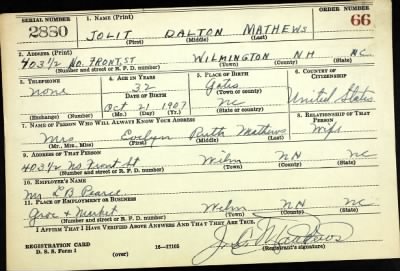 SERIAL NUMBER 1. NAME (Print) ORDER NUMBER
2880 JOLIT DALTON MATHEWS 66
(First) (Middle) (Last)
2. ADDRESS (Print)
403 1/2 No. FRONT. ST WILMINGTON NH NC.
(Number and street or R. F. D. number) (Town) (County) (State)
3. TELEPHONE 4. AGE IN YEARS 5. PLACE OF BIRTH 6. COUNTRY OF CITIZENSHIP
None 32 Gates United States
DATE OF BIRTH (Town or county)
Oct 21 1907 NC
(Exchange) (Number) (Mo.) (Day) (Yr.) (State or country)
7. NAME OF PERSON WHO WILL ALWAYS KNOW YOUR ADDRESS 8. RELATIONSHIP OF THAT PERSON
Mrs Evelyn Ruth Mathews Wife
(Mr., Mrs., Miss) (First) (Middle) (Last)
9. ADDRESS OF THAT PERSON
403 1/2 No Front St Wilm NH NC
(Number and street or R. F. D. number) (Town) (County) (State)
10. EMPLOYER'S NAME
Mr L B Pearce
11. PLACE OF EMPLOYMENT OR BUSINESS
Groc & Market Wilm NH NC
(Number and street or R. F. D. number) (Town) (County) (State)
I AFFIRM THAT I HAVE VERIFIED ABOVE ANSWERS AND THAT THEY ARE TRUE.
REGISTRATION CARD
D. S. S. Form 1 (over) 16—17105 J. D. Mathews
(Registrant's signature)